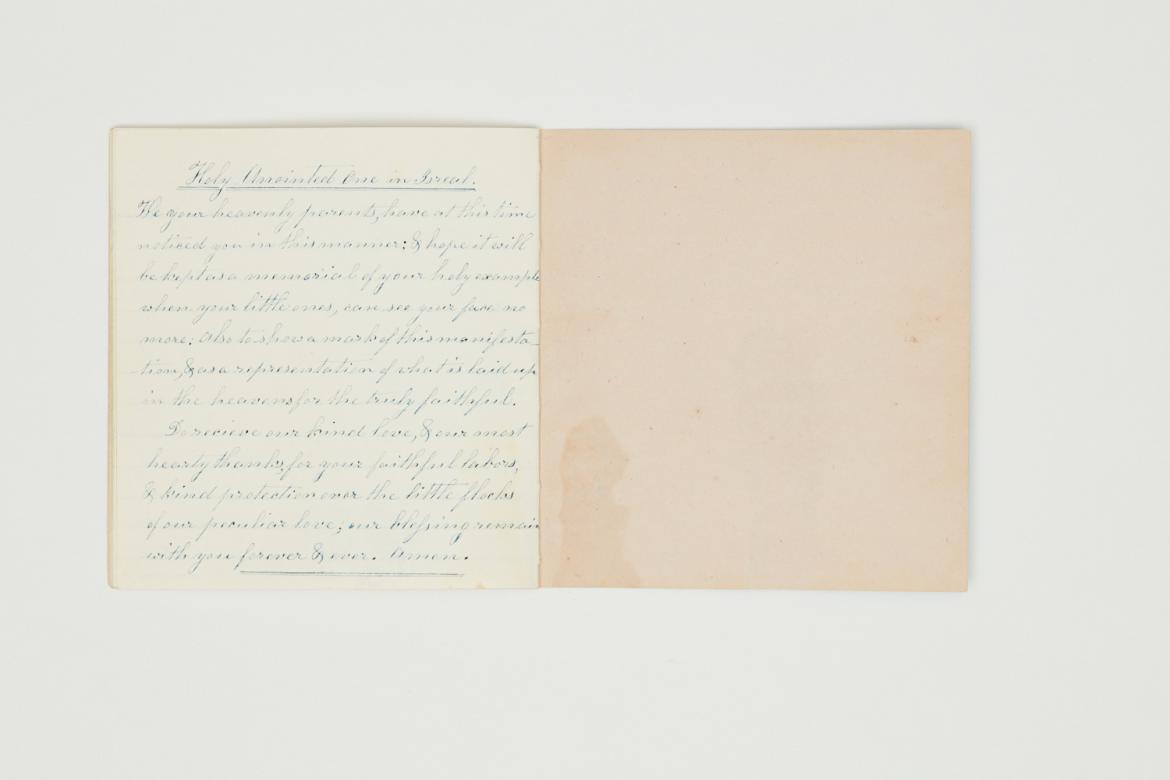 Holy Anointed One in Isreal.
We your heavenly parents, have at this time
noticed you in this manner: & hope it will
be kept as a memorial of your holy example
when your little ones, can see your face no
more; Also to show a mark of this manifesta-
tion, & as a representation of what is laid up
in the heavens for the truly faithful.
So recieve our kind love, & our most
hearty thanks, for your faithful labors,
& kind protection over the little flocks
of our peculiar love; our blessing remain
with you forever & ever. Amen.